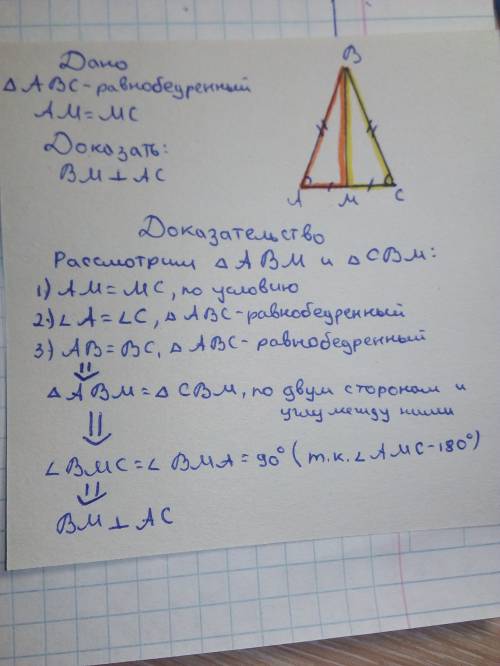 Дано
△ ABC - равнобедренный
AM = MC
Доказать:
BM ⊥ AC
B
A M C
Доказательство
Рассмотрим △ ABM и △ CBM:
1) AM = MC, по условию
2) ∠A = ∠C, △ ABC - равнобедренный
3) AB = BC, △ ABC - равнобедренный
⇓
△ ABM = △ CBM, по двум сторонам и
углу между ними
⇓
∠BMC = ∠ BMA = 90° ( т.к. ∠ AMC - 180°)
⇓
BM ⊥ AC